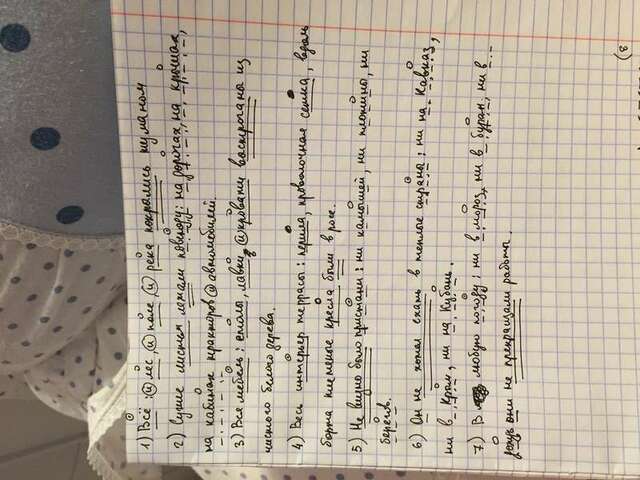 1) Всё : и лес, и поле, и река покрались туманом
2) Сухие листья лежали повсюду: на дорогах, на крышах,
на кабинах тракторов и автомобилей.
3) Вся мебель: столы, лавки, и кровати выстроганы из
чистого белого дерева.
4) Весь интерьер террасы: перила, проволочная сетка, вдоль
борта плетеные кресла были в росе.
5) Не видно было пристани: ни камышей, ни плотины, ни
берегов.
6) Он не хотел ехать в теплые страны: ни на Кавказ,
ни в Крым, ни на Кубань.
7) В любую погоду: ни в мороз, ни в буран, ни в
дождь они не прекращали работы.
(8